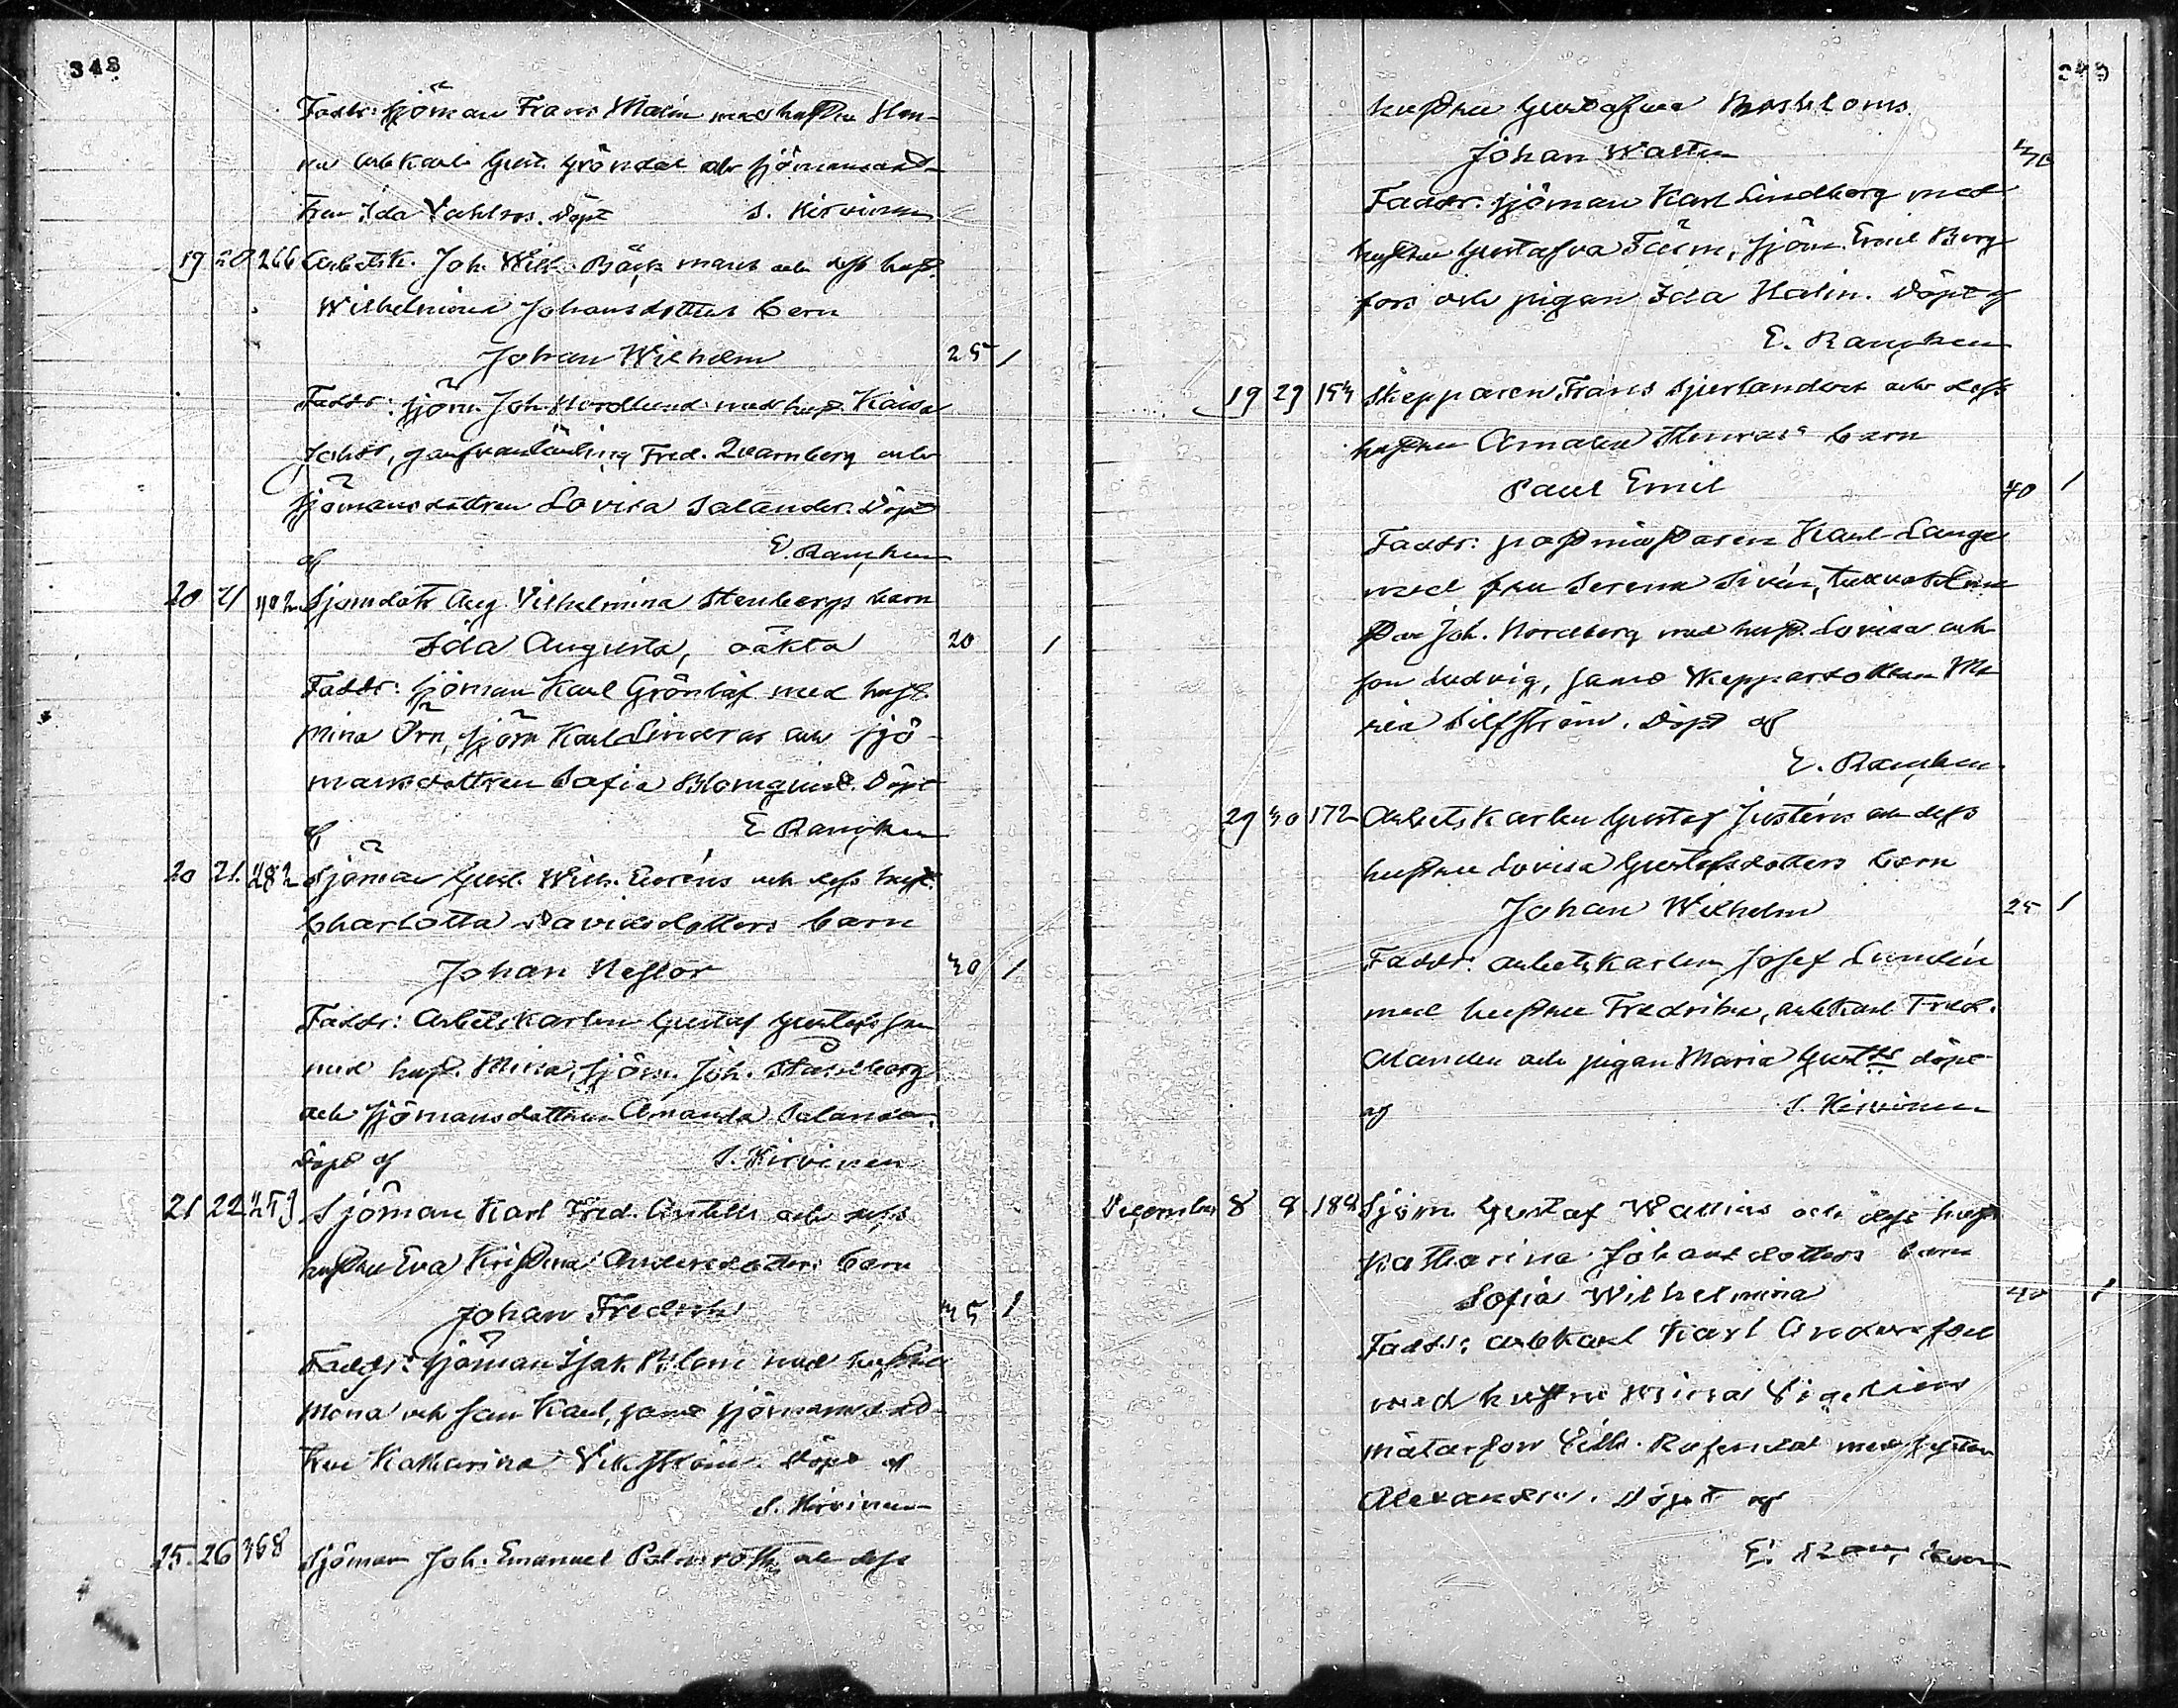 348
Faddr: sjöman Frans Malin med hustru Hen-
na arbkarl Gust. Gröndal och sjömansdot-
tren Ida Vahlros. Döpt S. Hirvinen
19 20 266 Arbetsk. Joh. Wilh. Bäckmans och dess hust.
Wilhelmina Johansdotters barn
Johan Wilhelm 25 1
Faddr: sjöm. Joh. Nordlund med hust. Kaisa
Johdr, Fred. Qvarnberg och
sjömansdottren Lovisa Salander. Döpt
af E. Rancken
20 21 402 Sjömdotr Aug. Vilhelmina Stenbergs barn
Ida Augusta, oäkta 20 1
Faddr: sjöman Karl Grönlöf med hust.
Mina Örn, sjöm Karl Linderos och sjö-
mansdottren Sofia Blomqvist. Döpt
af E Rancken
20 21. 282 Sjöman Gust. Wilh. och dess hust.
Charlotta Davidsdotters barn
Johan Nestor 30 1
Faddr: Arbetskarlen Gustaf Gustafsson
med hust. Mina, sjöm. Joh. Strandberg
och sjömansdottren Amanda Salander.
Döpt af S. Hirvinen
21 22 259 Sjöman Karl Fred. Antells och dess
hustru Eva Kristina Andersdotters barn
Johan Fredrik 35 1
Faddr: sjöman Isak Blom med hustru
Mona och son Karl, samt sjömansdot-
tren Katharina Vikström. Döpt af
S. Hirvinen
25. 26 368 Sjöman Joh. Emanuel Palmroths och dess
349
hustru Gustafva
Johan Walter
Faddr. sjöman Karl Lindberg med
hustru Gustafva sjöm. Emil Berg
fors och pigan Ida Malin. Döpt af
E. Rancken
19 29 154 Skepparen Frans Sjerlanders och dess
hustru Amanda barn
Paul Emil 40 1
Faddr: postmästaren Karl Lange
med fru Serena Sivén,
Joh. Nordberg med hust. Lovisa och
son Ludvig, samt skeppardottren Ma
ria Silfström. Döpt af
E. Rancken
29 30 172 Arbetskarlen Gustaf Justéns och dess
hustru Lovisa Gustafsdotters barn
Johan Wilhelm 25 1
Faddr. arbetskarlen Josef Lundén
med hustru Fredrika, arbkarl Fred.
Alander och pigan Maria Gustdr döpt
af S. Hirvinen
December 8 9. 184 Sjöm Gustaf Wallins och dess hust
Katharina Johansdotters barn
Sofia Wilhelmina 40 1
Faddr: arbkarl Karl Andersson
med hustru Mina
mätarson Vilh. Rosendal med syster
Alexandra. Döpt af
E. Rancken